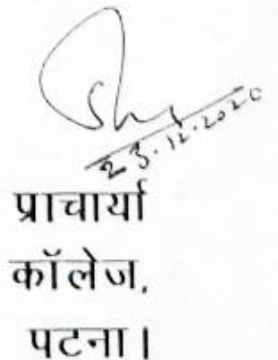 23.12.2020
प्राचार्या
कॉलेज,
पटना।